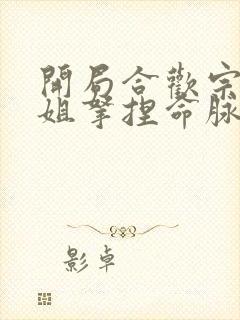 開局合歡宗
姐拏捏命脉
影卓